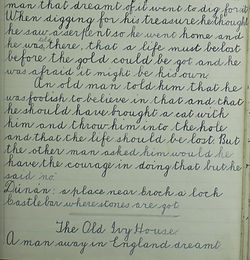 man that dreamt of it went to dig for it
When digging for his treasure he thought
he saw a serpent so he went home and
he was there, that a life must be lost
before the gold could be got and he
was afraid it might be his own
An old man told him that he
was foolish to believe in that and that
he should have brought a cat with
him and throw him into the hole
and that the life should be lost. But
the other man asked him would he
have the courage in doing that but he
said no.
Dúnán: a place near brock a lock
Castlebar where stones are got
The Old Ivy House
A man away in England dreamt